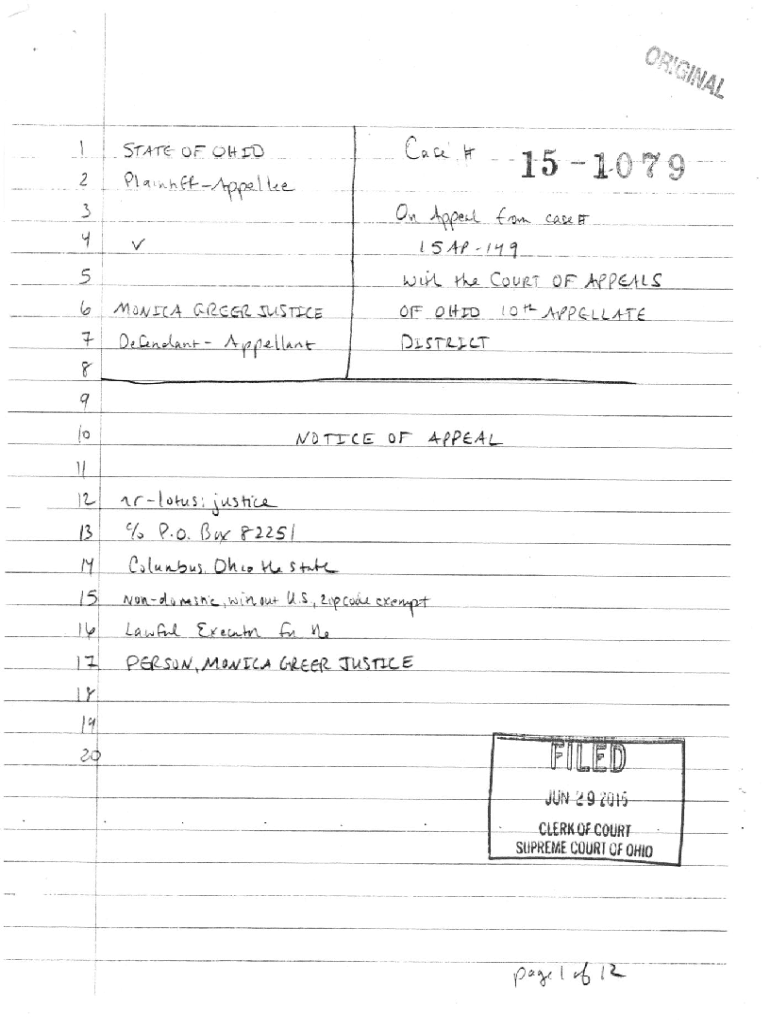 ORIGINAL
1 STATE OF OHIO
2 Plaintiff-Appellee
3
4 v
5
6 MONICA GREER JUSTICE
7 Defendant - Appellant
8
Case # 15-1079
On Appeal from case#
15AP-149
with the COURT OF APPEALS
OF OHIO 10th APPELLATE
DISTRICT
9
10 NOTICE OF APPEAL
11
12 nr-lotus: justice
13 c/o P.O. Box 82251
14 Columbus, Ohio the state
15 Non-domestic, without U.S., zipcode exempt
16 Lawful Executor for the
17 PERSON, MONICA GREER JUSTICE
18
19
20
FILED
JUN 29 2015
CLERK OF COURT
SUPREME COURT OF OHIO
page 1 of 12